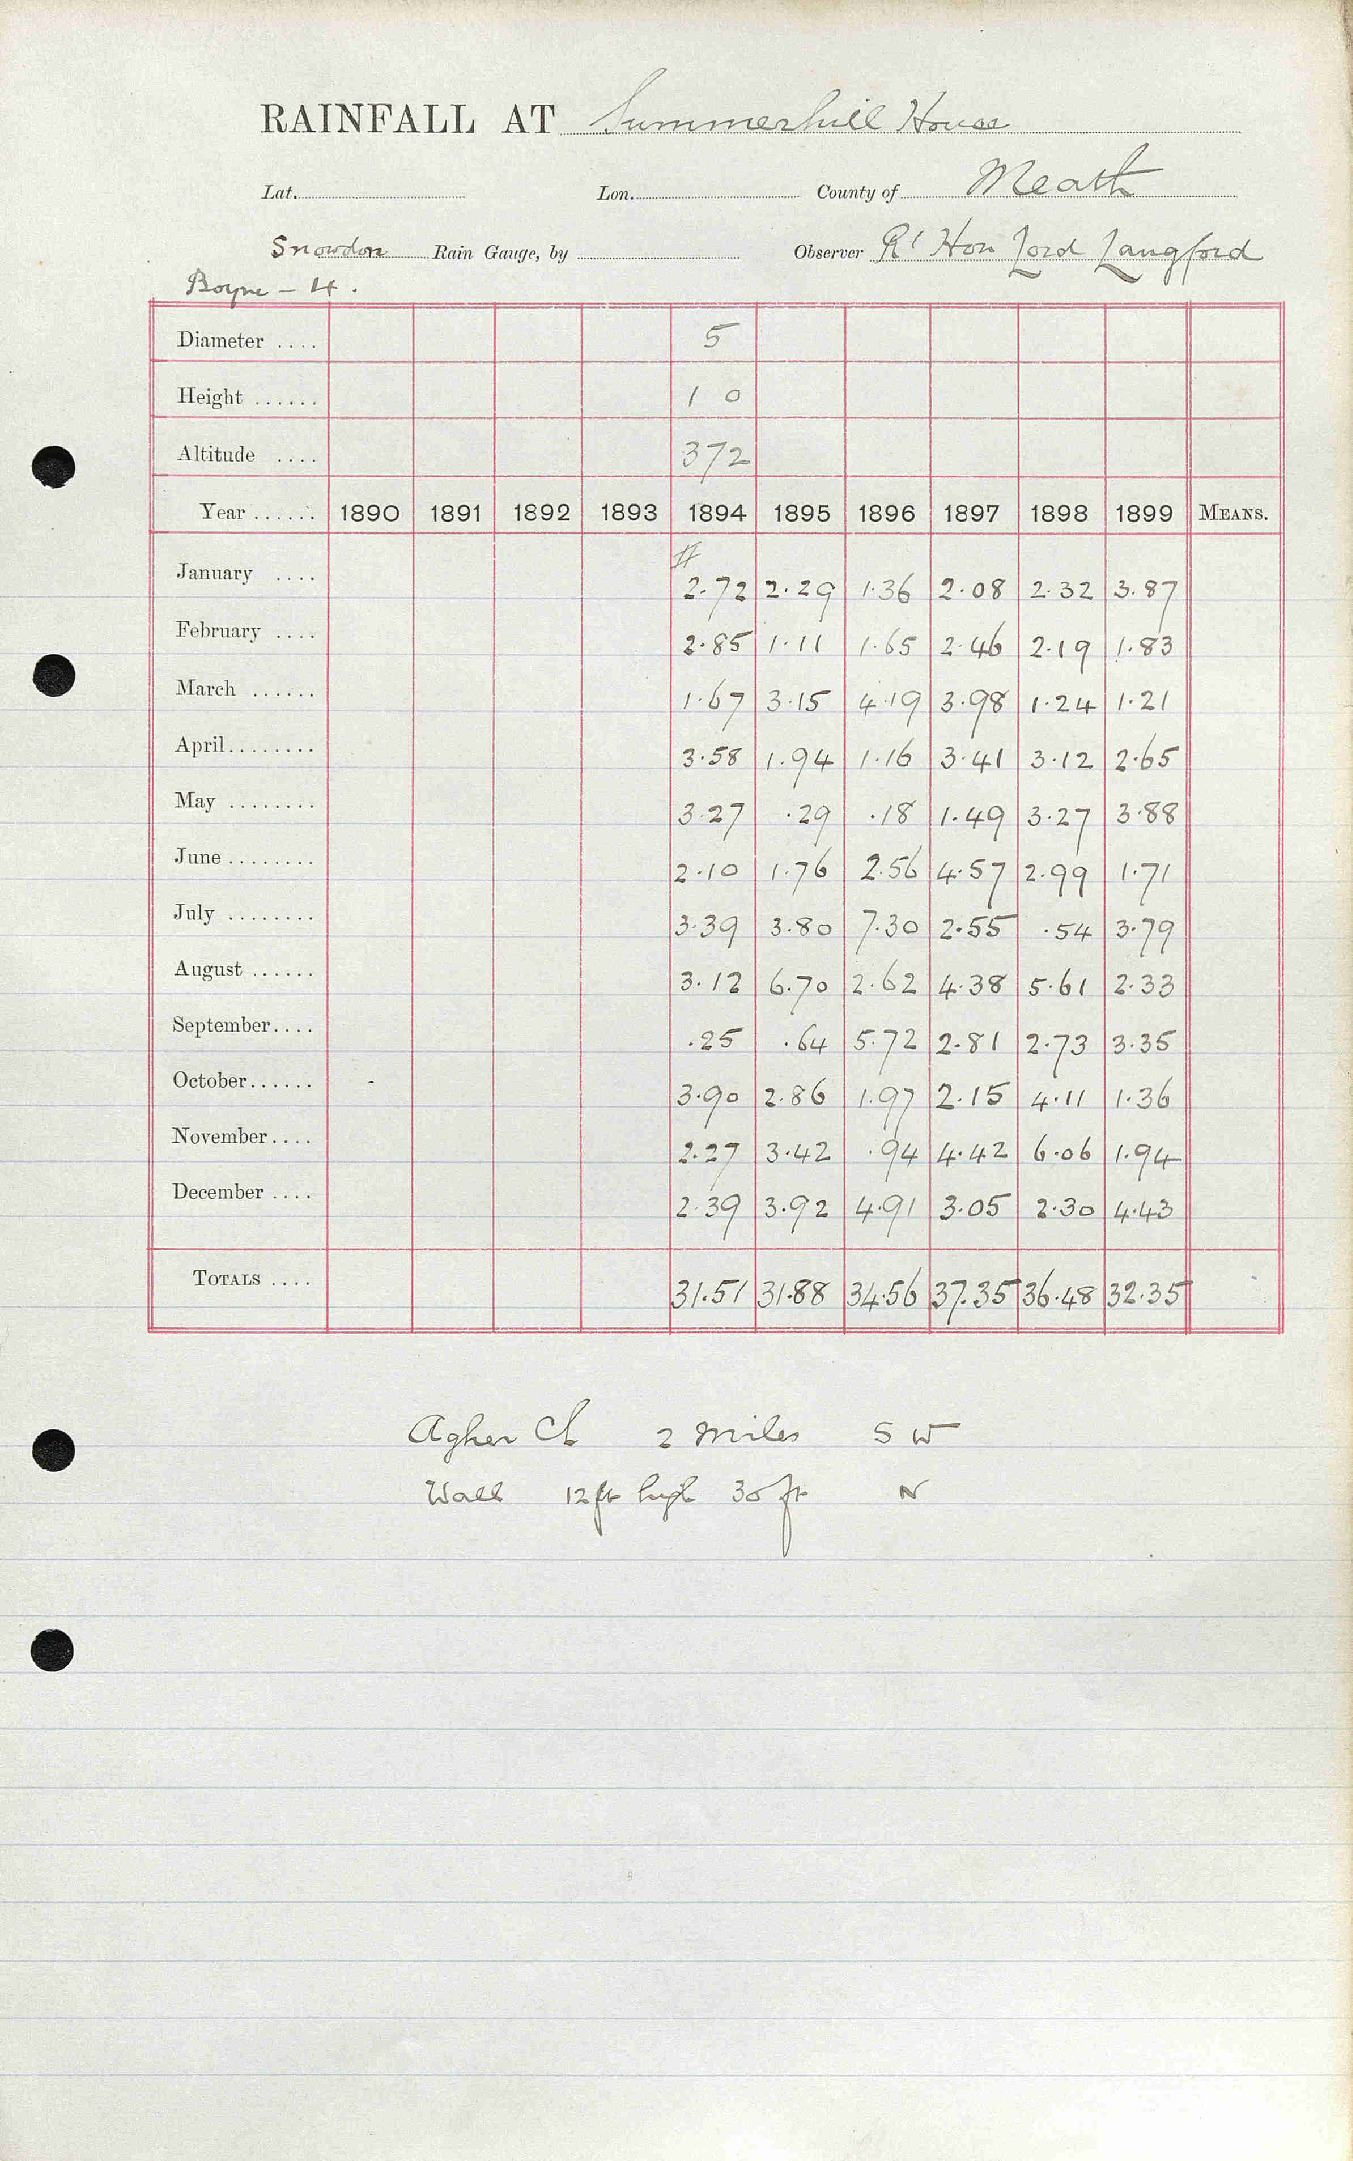 RAINFALL AT Summerhill House
Lat. Lon. County of Meath
Snowdon Rain Gauge, by Observer Rt Hon Lord Langford
Boyne - 4.
Diameter .... 5
Height ...... 1 0
Altitude .... 372
Year ...... 1890 1891 1892 1893 1894 1895 1896 1897 1898 1899 MEANS.
#
January .... 2.72 2.29 1.36 2.08 2.32 3.87
February .... 2.85 1.11 1.65 2.46 2.19 1.83
March ...... 1.67 3.15 4.19 3.98 1.24 1.21
April........ 3.58 1.94 1.16 3.41 3.12 2.65
May ........ 3.27 .29 .18 1.49 3.27 3.88
June ........ 2.10 1.76 2.56 4.57 2.99 1.71
July ........ 3.39 3.80 7.30 2.55 .54 3.79
August ...... 3.12 6.70 2.62 4.38 5.61 2.33
September.... .25 .64 5.72 2.81 2.73 3.35
October...... - 3.90 2.86 1.97 2.15 4.11 1.36
November.... 2.27 3.42 .94 4.42 6.06 1.94
December .... 2.39 3.92 4.91 3.05 2.30 4.43
TOTALS .... 31.51 31.88 34.56 37.35 36.48 32.35
Agher Ch 2 miles S W
Wall 12 ft high 30 ft N